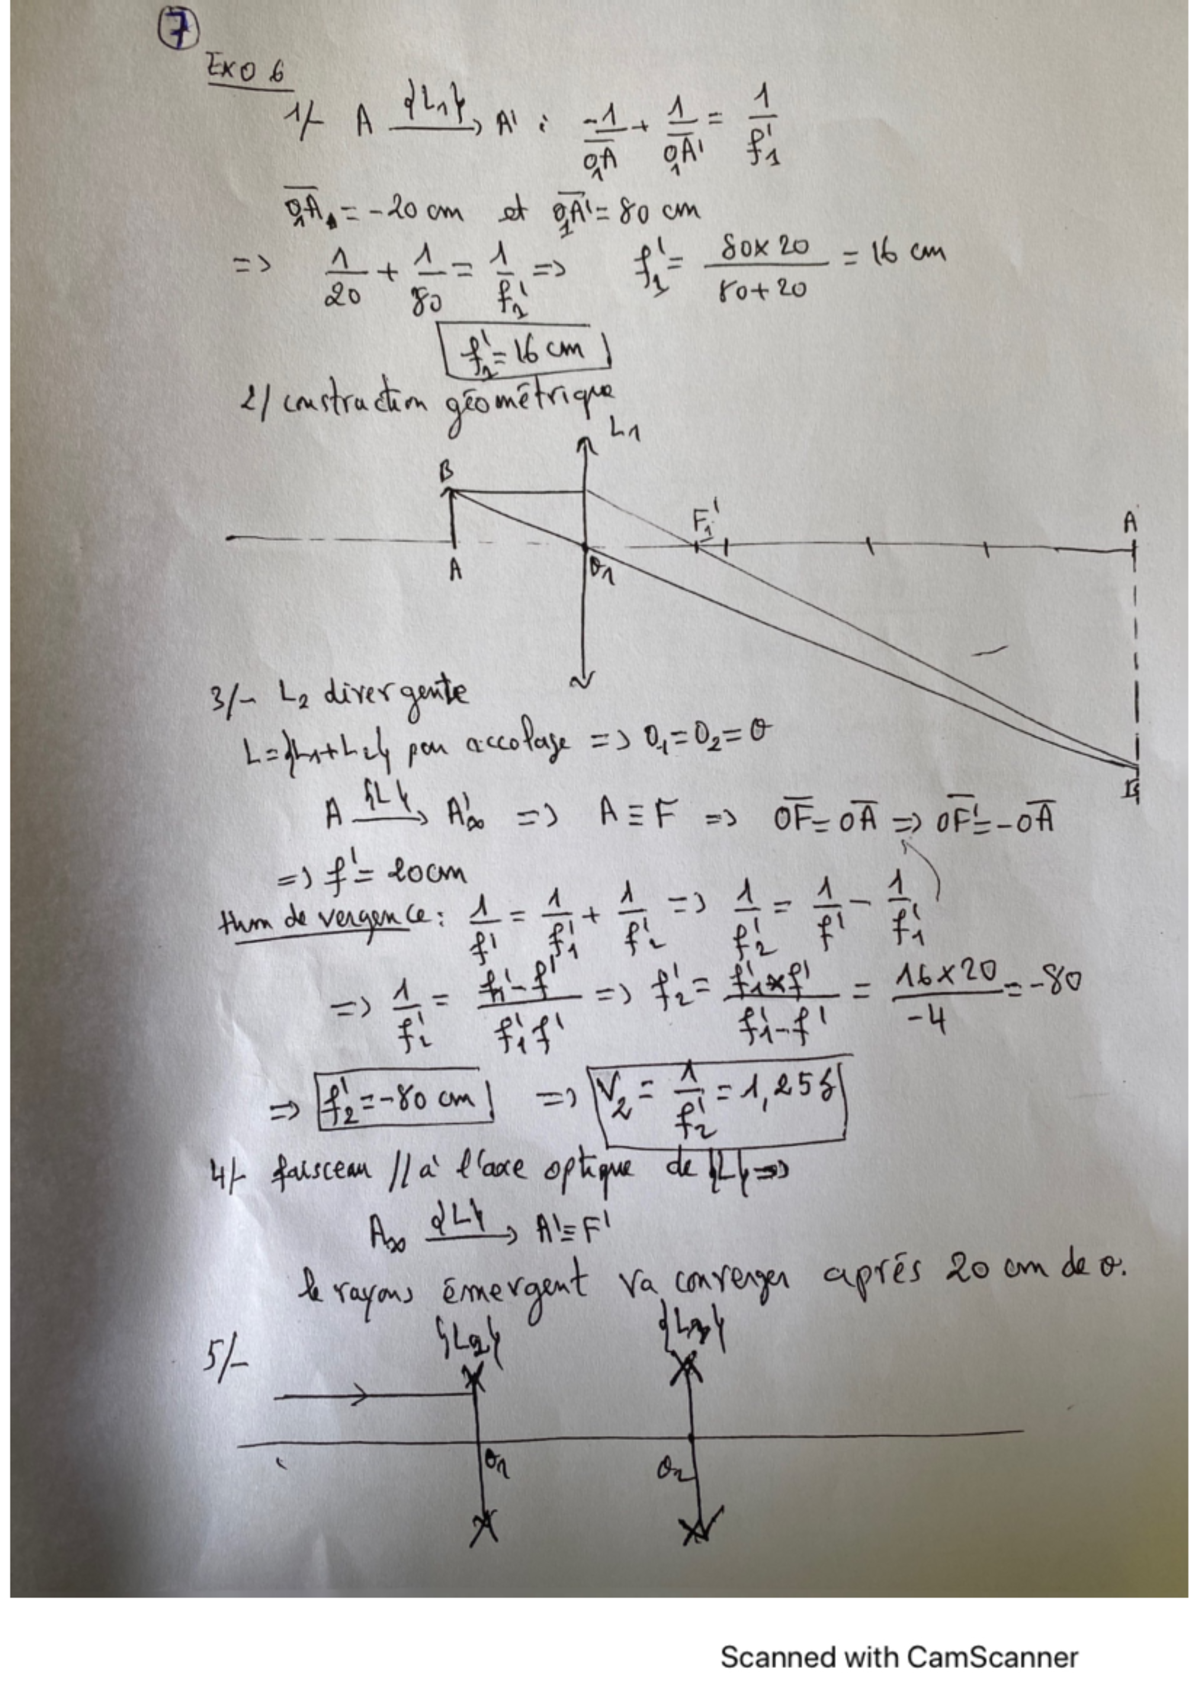 7
EXO 6
1/- A {L1}→ A' : -1/O1A + 1/O1A' = 1/f'1
O1A = -20 cm et O1A' = 80 cm
=> 1/20 + 1/80 = 1/f'1 => f'1 = 80x20/80+20 = 16 cm
f'1 = 16 cm
2/ construction géométrique
L1
B
F1'
A
A
O1
3/- L2 divergente
L={L1+L2} par accolage => O1=O2=O
A {L}→ A'∞ => A ≡ F => OF = OA => OF' = -OA
=> f' = 20cm
thm de vergence: 1/f' = 1/f'1 + 1/f'2 => 1/f'2 = 1/f' - 1/f'1
=> 1/f'2 = f'1-f'/f'1f' => f'2 = f'1xf'/f'1-f' = 16x20/-4 = -80
=> f'2 = -80 cm => V2 = 1/f'2 = 1,25δ
4/- faisceau // à l'axe optique de {L} =>
A∞ {L}→ A'≡F'
le rayons émergent va converger après 20 cm de o.
5/-
{L2}
O1
O2
Scanned with CamScanner